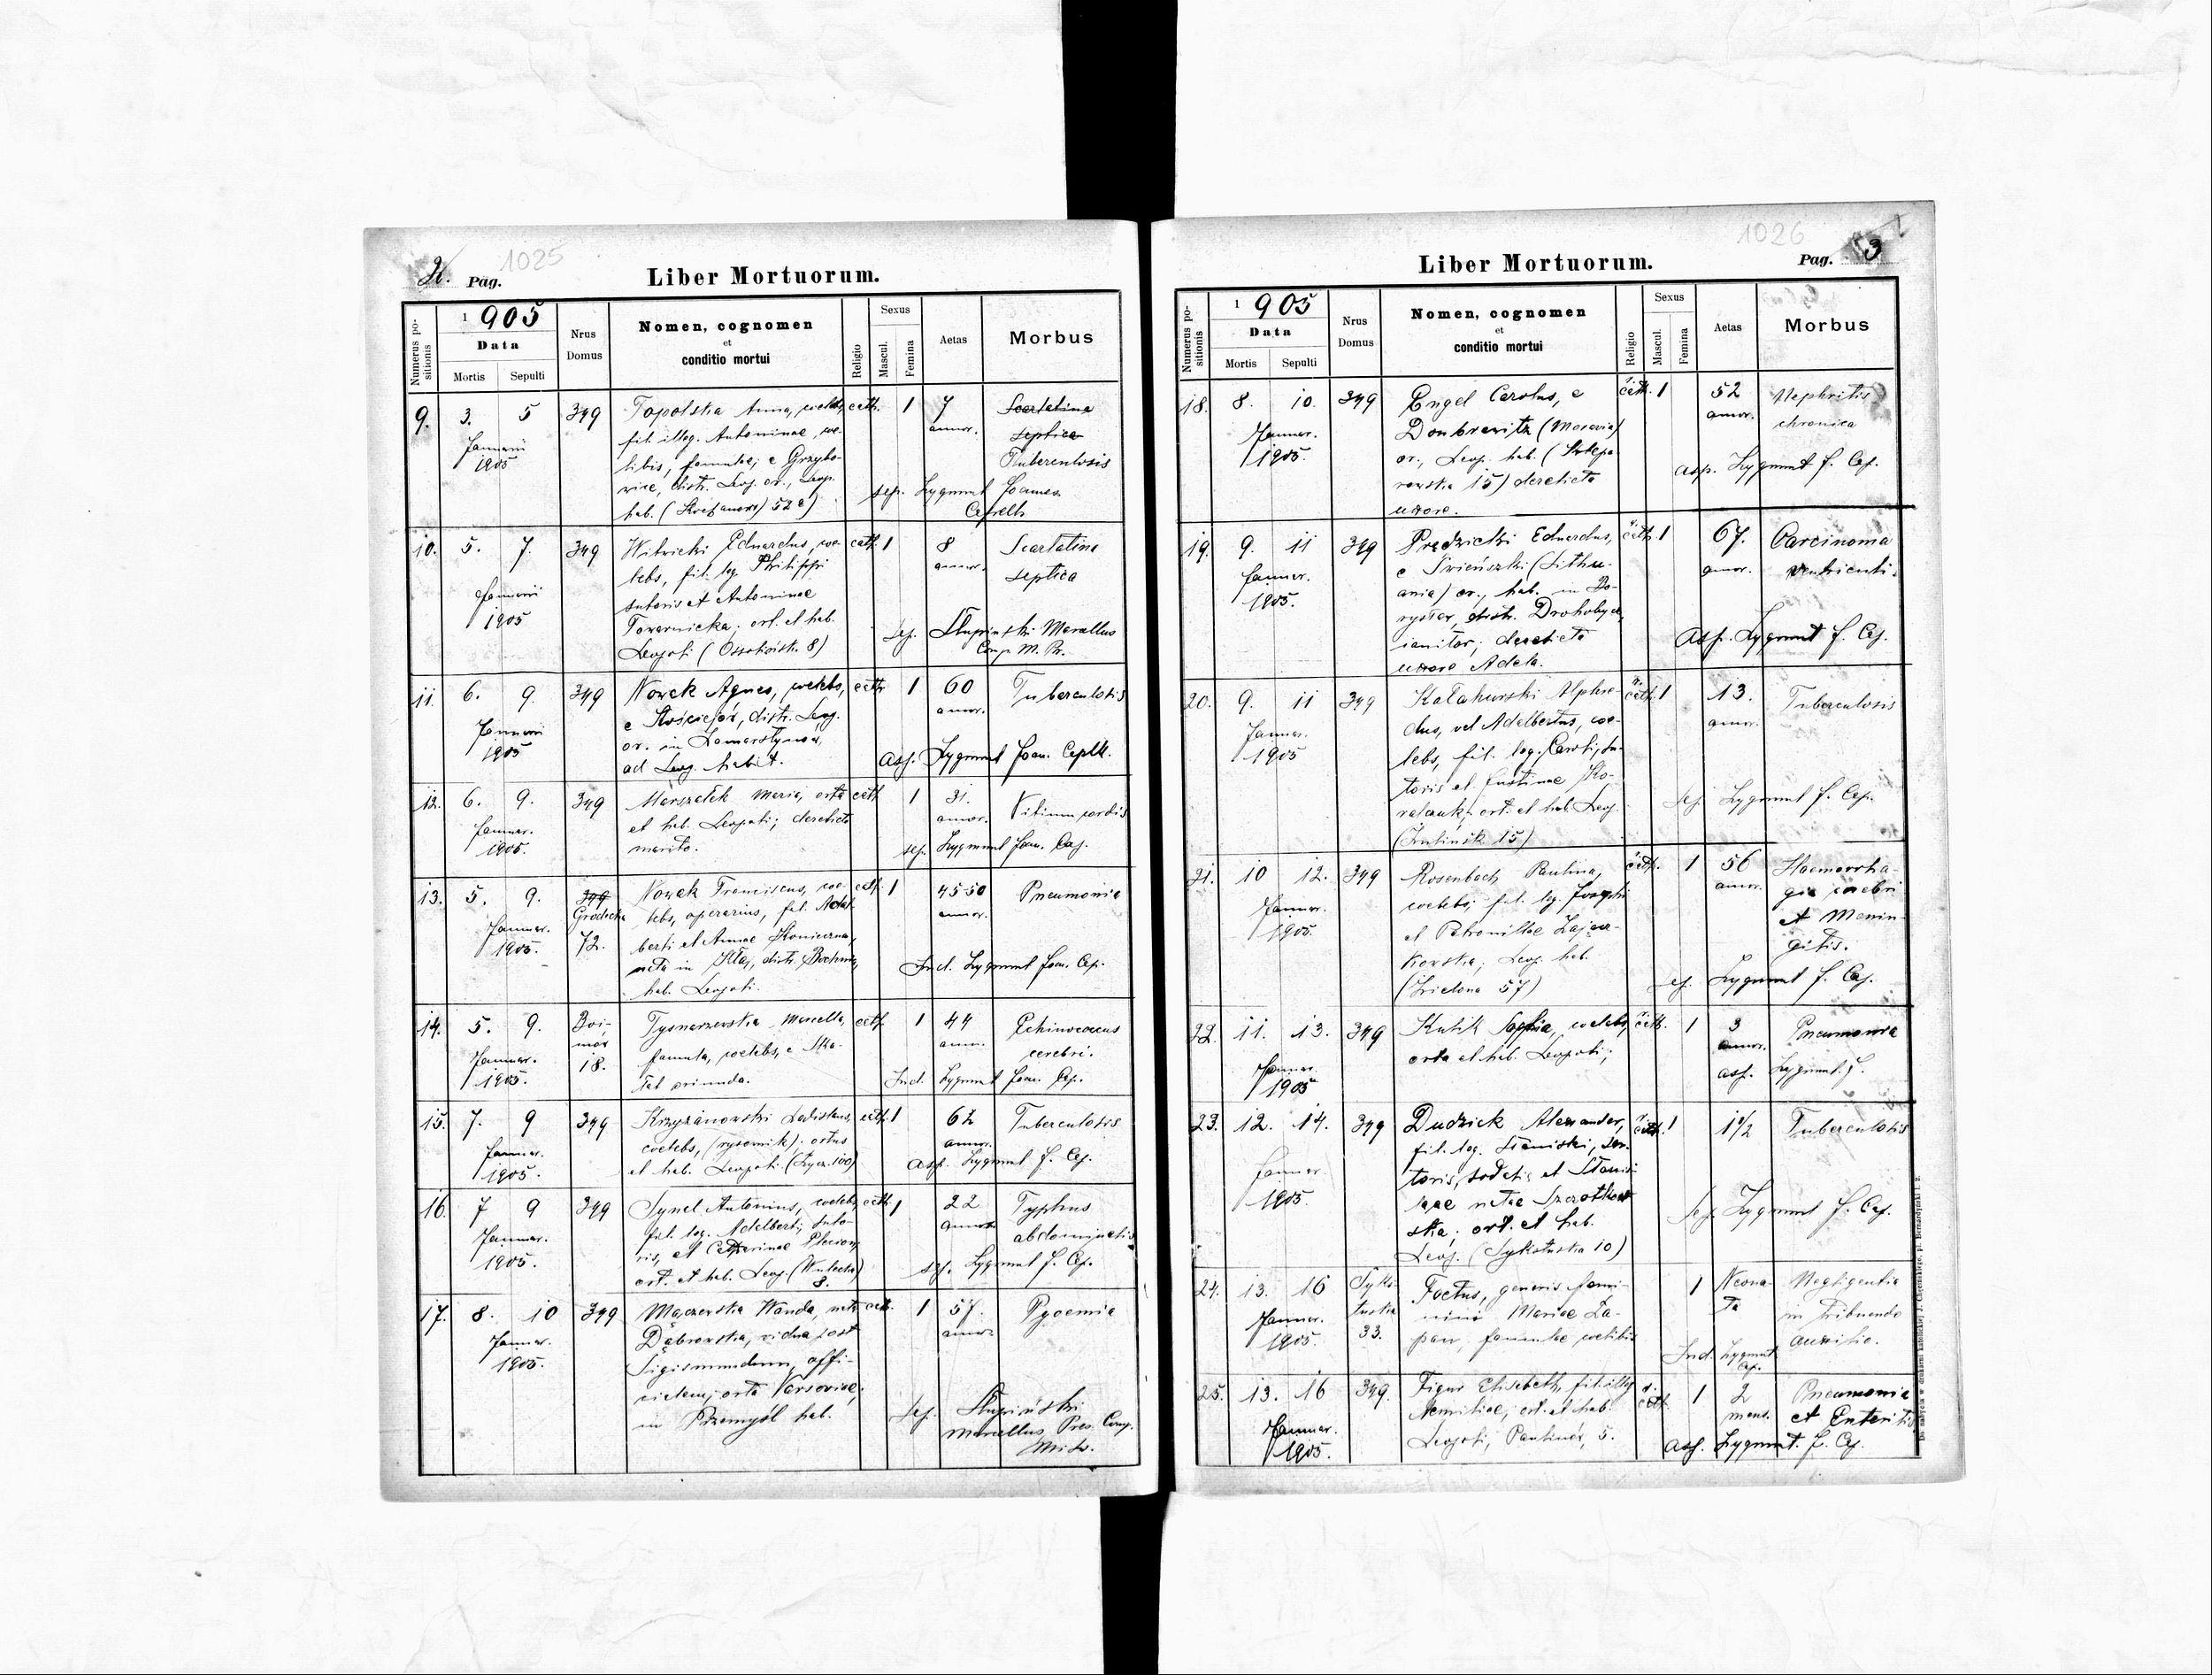 2. Pag. 1025
Liber Mortuorum.
Numerus positionis
1905
Data
Mortis Sepulti
Nrus Domus
Nomen, cognomen
et
conditio mortui
Religio
Sexus
Mascul. Femina
Aetas
Morbus
9. 3. 5 349 Topolska Anna, coelebs, cath. 1 7 Scarlatina
Januarii fil. illeg. Antoninae, coe- annor. septica
1905 libis, famulae; e Grzybo- Tuberculosis
wice, distr. Leop. or., Leop. sep. Zygmunt Joannes
hab. 52 a)
10. 5. 7. 349 Witwicki Eduardus, coe- cath. 1 8 Scarlatina
lebs, fil. leg. Philippi annor. septica
Januarii sutoris et Antoninae
1905 Towarnicka; ort. et hab. Sep. Skupiński Marcellus
Leopoli (Ossolińsk. 8)
11. 6. 9. 349 Nowak Agnes, coelebs, cath. 1 60 Tuberculosis
Januarii e Kościejów, distr. Leop. annor.
1905 or. in Zamarstynów,
ad Leop. habit. asp. Zygmunt Joan.
12. 6. 9. 349 Marszałek Maria, orta cath. 1 31. Vitium cordis
Januar. et hab. Leopoli; derelicto annor.
1905. marito. sep. Zygmunt Joan. Cap.
13. 5. 9. 349 Nowak Franciscus, coe- cath. 1 45-50 Pneumonia
Januar. Grodecka lebs, operarius, fil. Adal- annor.
1905. 72. berti et Annae Konieczna,
nata in Kłaj, distr. Bochnia, Ind. Zygmunt Joan. Cap.
hab. Leopoli.
14. 5. 9. Boi- Marcella, cath. 1 44 Echinococcus
Januar. mów famula, coelebs, e Ska- annor. cerebri.
1905. 18. łat oriunda. Ind. Zygmunt Joan. Cap.
15. 7. 9 349 Krzyżanowski Ladislaus, cath. 1 62 Tuberculosis
Januar. coelebs, (rysownik); ortus annor.
1905. et hab. Leopoli. asp. Zygmunt J. Cap.
16. 7 9 349 Synel Antonius, coelebs, cath. 1 22 Typhus
Januar. fil. leg. Adelberti, suto- annor. abdominalis
1905. ris, et Catharinae
ort. et hab. Leop. (Wulecka) 8. sep. Zygmunt J. Cap.
17. 8. 10 349 Mączewska Wanda, nata cath. 1 57. Pyaemia
Januar. Dąbrowska, vidua post annor.
1905. Sigismundum, offi-
cialem; orta Varsoviae,
in Przemyśl hab. Sep. Skupiński
Marcellus,
1026 Pag. 3
Liber Mortuorum.
Numerus positionis
1905
Data
Mortis Sepulti
Nrus Domus
Nomen, cognomen
et
conditio mortui
Religio
Sexus
Mascul. Femina
Aetas
Morbus
18. 8. 10. 349 Engel Carolus, e cath. 1 52 Nephritis
Januar. Doubrawitz (Moravia) annor. chronica
1905. or., Leop. hab. ( 15) derelicta asp. Zygmunt J. Cap.
uxore.
19. 9. 11 349 Prędzicki Eduardus, cath. 1 67. Carcinoma
Januar. (Lithu- annor. ventriculi.
1905. ania) or., hab. in Bo-
rysław, distr. Drohobycz,
ianitor; derelicta asp. Zygmunt J. Cap.
uxore Adela.
20. 9. 11 349 Kałakurski Alphre- cath. 1 13. Tuberculosis
Januar. dus, vel Adelbertus, coe- annor.
1905 lebs, fil. leg. Caroli, su-
toris et Justinae Ko-
ort. et hab. Leop. sep. Zygmunt J. Cap.
15)
21. 10 12. 349 Rosenbach Paulina, cath. 1 56 Haemorrha-
Januar. coelebs, fil. leg. Josephi annor. gia cerebri
1905. et Petronillae Zającz- et Menin-
kowska; Leop. hab. gitis.
(Zielona 57) sep. Zygmunt J. Cap.
22. 11. 13. 349 Kulik Sophia, coelebs, cath. 1 3 Pneumonia
Januar. orta et hab. Leopoli; annor.
1905 asp. Zygmunt. J.
23. 12. 14. 349 Dudziek Alexander, cath. 1 1 1/2 Tuberculosis
fil. leg. Stanislai, sar-
Januar. toris, sodalis et Stanis-
1905. laae natae
ska; ort. et hab. sep. Zygmunt J. Cap.
Leop. (Sykstuska 10)
24. 13. 16 Syks- Foetus, generis femi- 1 Neona- Negligentia
Januar. tuska nini Mariae Za- ta in tribuendo
1905. 33. famulae coelibis Ind. Zygmunt Cap. auxilio.
25. 13. 16 349. Figur Elisabeth, fil. illeg. cath. 1 2 Pneumonia
Januar. Aemiliae; ort. et hab. mens. et Enteritis
1905. Leopoli, Paulinów, 5. asp. Zygmunt. J. Cap.